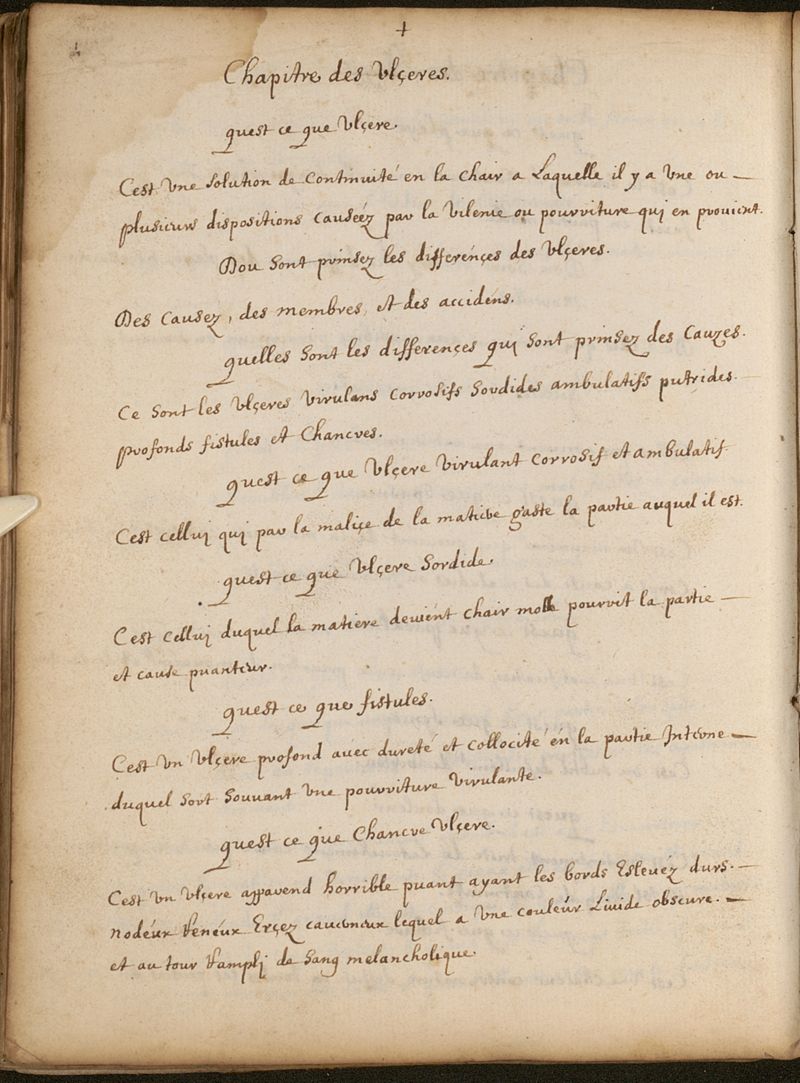 +
Chapitre des Vlçeres.
quest ce que Vlçere.
Cest Vne solution de Continuité en la chair a Laquelle il y a Vne ou
plusieurs dispositions Causeéz par la Vilenie ou pourriture qui en prouient.
Dou sont prinsez les differençes des Vlçeres.
Des Causez, des membres, et des accidens.
quelles sont les differençes qui sont prinsez des Cauzes.
Ce sont les Vlçeres Virulans Corrosifs Sordides ambulatifs putrides.
profonds fistules et Chancres.
quest ce que Vlçere Virulant Corrosif et ambulatif
Cest cellui qui par la maliçe de la matiere gaste la partie auquel il est.
quest ce que Vlçere Sordide.
Cest Cellui duquel la matiere deuient chair molle pourrit la partie
et cause puanteur.
quest ce que fistules.
Cest Vn Vlçere profond auec dureté et collocité en la partie Interne
duquel sort souuant Vne pourriture Virulante.
quest ce que Chancre Vlçere.
Cest Vn Vlçere apparend horrible puant ayant les bords Esleuéz durs.
nodeux Veneux lequel a Vne couleur Liuide obscure.
et au tour Rampli de Sang melancholique.